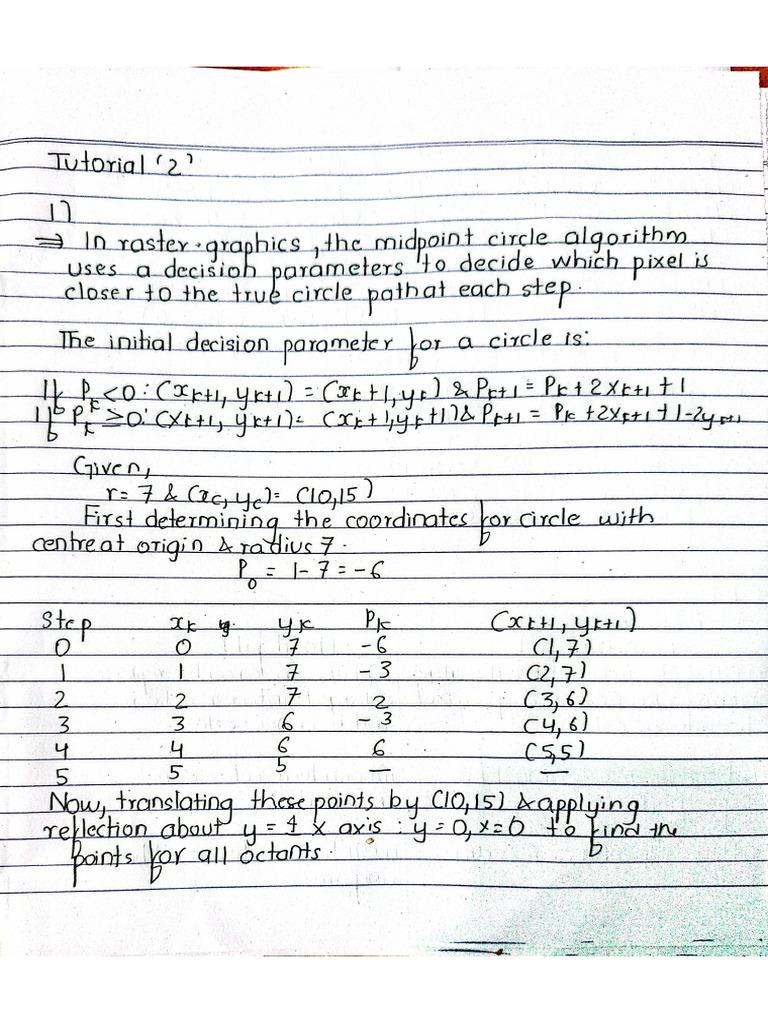 Tutorial '2'
17
⇒ In raster graphics, the midpoint circle algorithm
uses a decision parameters to decide which pixel is
closer to the true circle path at each step.
The initial decision parameter for a circle is:
If Pk < 0 : (xk+1, yk+1) = (xk+1, yk) & Pk+1 = Pk + 2xk+1 + 1
If Pk ≥ 0 : (xk+1, yk+1) = (xk+1, yk+1) & Pk+1 = Pk + 2xk+1 + 1 - 2yk+1
Given,
r = 7 & (xc, yc) = (10,15)
First determining the coordinates for circle with
centre at origin & radius 7.
P0 = 1 - 7 = -6
Step xk yk Pk (xk+1, yk+1)
0 0 7 -6 (1,7)
1 1 7 -3 (2,7)
2 2 7 2 (3,6)
3 3 6 -3 (4,6)
4 4 6 6 (5,5)
5 5 5 — —
Now, translating these points by (10,15) & applying
reflection about y = x axis : y = 0, x = 0 to find the
points for all octants.